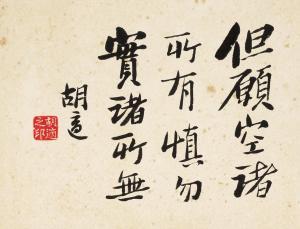 但願空諸
所有慎勿
實諸所無
胡適
胡適之印